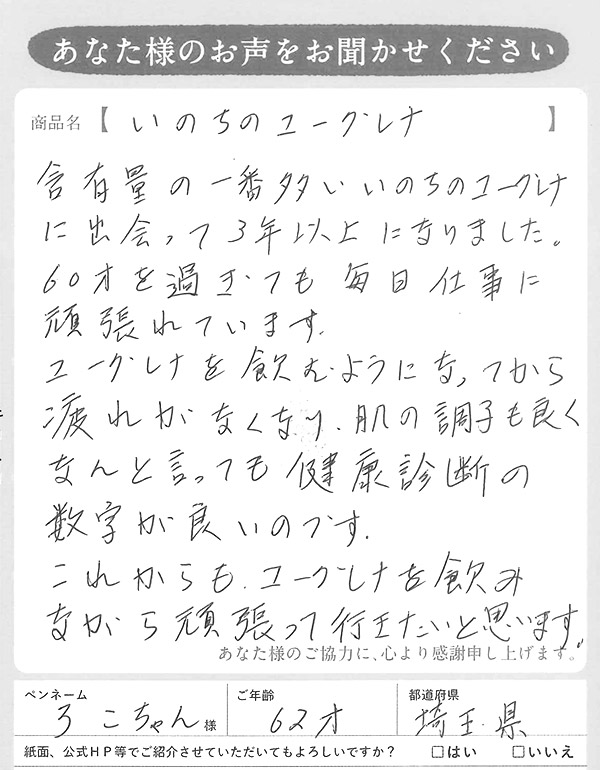 あなた様のお声をお聞かせください
商品名【 いのちのユーグレナ 】
含有量の一番多いいのちのユーグレナ
に出会って3年以上になりました。
60才を過ぎても毎日仕事に
頑張れています.
ユーグレナを飲むようになってから
疲れがなくなり、肌の調子も良く
なんと言っても健康診断の
数字が良いのです.
これからも、ユーグレナを飲み
ながら頑張って行きたいと思います。
あなた様のご協力に、心より感謝申し上げます。
ペンネーム ご年齢 都道府県
ろこちゃん様 62才 埼玉県
紙面、公式HP等でご紹介させていただいてもよろしいですか? □はい □いいえ